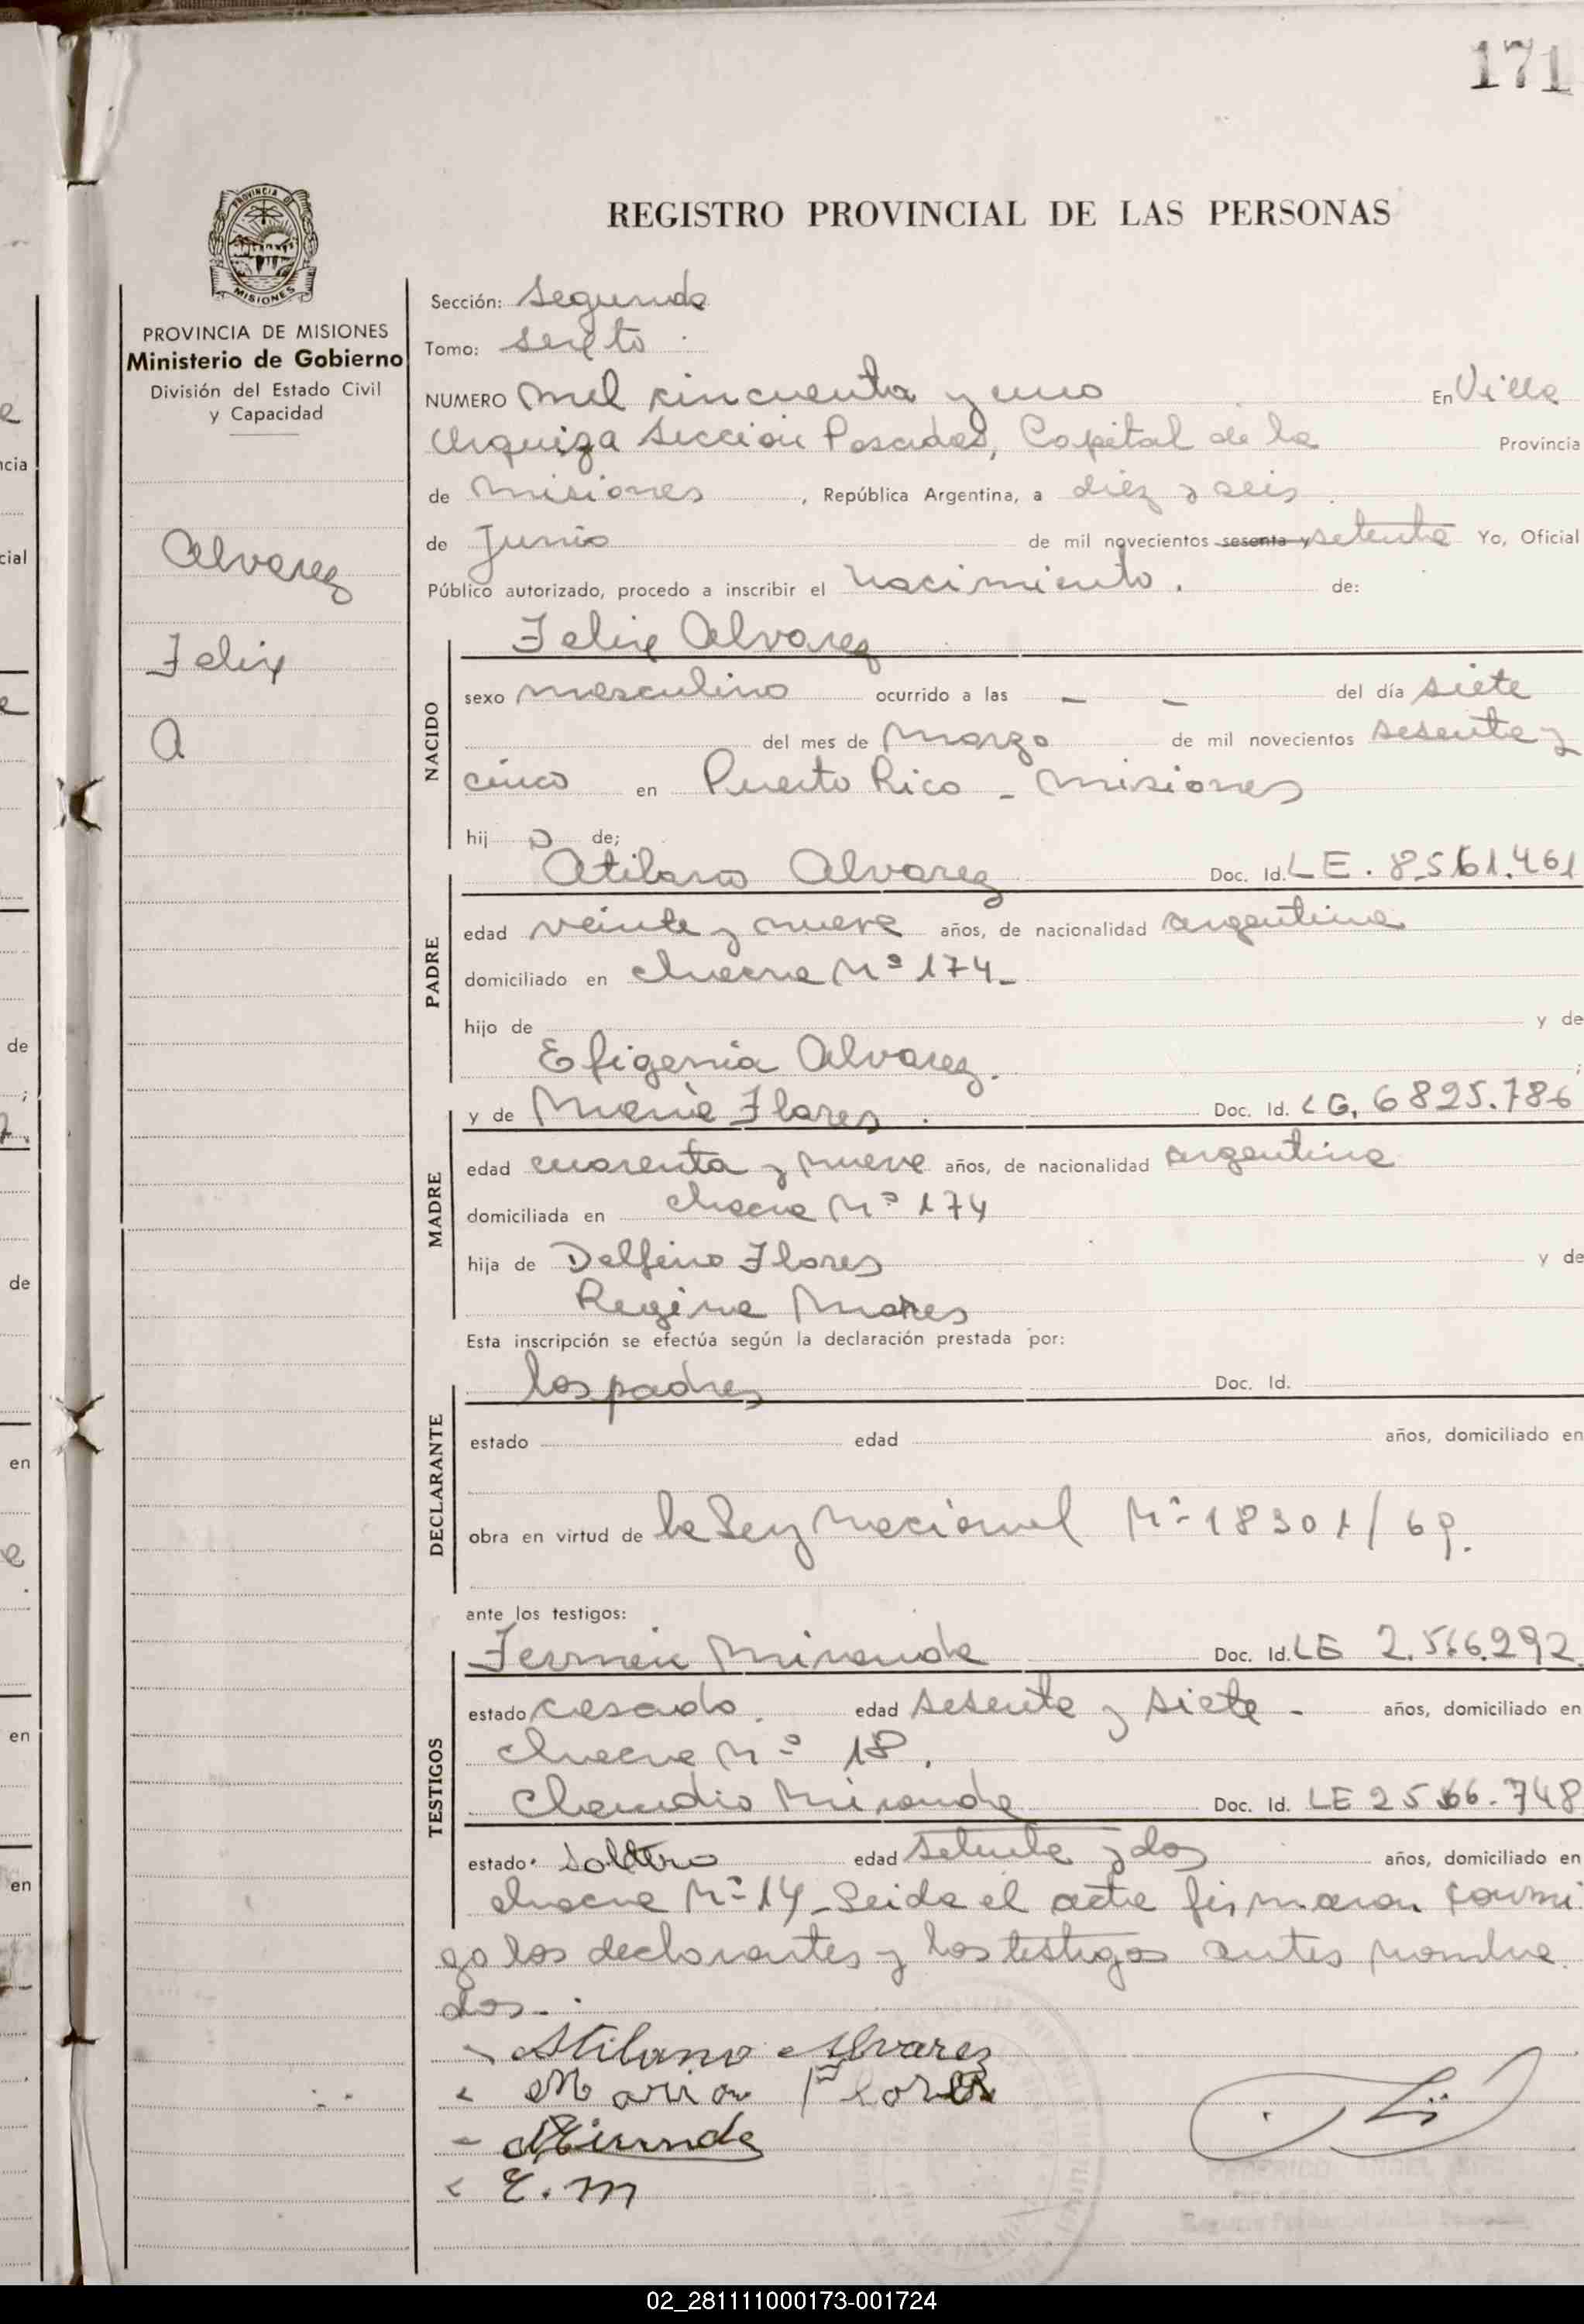 171
REGISTRO PROVINCIAL DE LAS PERSONAS
PROVINCIA DE MISIONES
Ministerio de Gobierno
División del Estado Civil
y Capacidad
Alvarez
Felix
A
Sección: Segunda
Tomo: sexto
NUMERO mil cincuenta y uno En Villa
Urquiza Sección Posadas, Capital de la Provincia
de Misiones, República Argentina, a diez y seis
de Junio de mil novecientos sesenta y setenta Yo, Oficial
Público autorizado, procedo a inscribir el nacimiento. de:
NACIDO
Felix Alvarez
sexo masculino ocurrido a las - - del día siete
del mes de Marzo de mil novecientos sesenta y
cinco en Puerto Rico - Misiones
hij o de;
PADRE
Atilano Alvarez Doc. Id. LE. 8.561.461
edad veinte y nueve años, de nacionalidad argentina
domiciliado en chacra Nº 174-
hijo de y de
Efigenia Alvarez. ;
MADRE
y de Maria Flores. Doc. Id. LC, 6825.786
edad cuarenta y nueve años, de nacionalidad argentina
domiciliada en chacra Nº 174
hija de Delfino Flores y de
Regina
Esta inscripción se efectúa según la declaración prestada por:
DECLARANTE
los padres Doc. Id.
estado edad años, domiciliado en
obra en virtud de la Ley Nacional Nº 18301/69.
ante los testigos:
TESTIGOS
Fermin Miranda Doc. Id. LE 2.566.292
estado casado. edad sesenta y siete - años, domiciliado en
chacra Nº 18.
Claudio Miranda Doc. Id. LE 2566.748
estado soltero edad setenta y dos años, domiciliado en
chacra Nº 14 - Leida el acta firmaron conmi
go los declarantes y los testigos antes nombra
dos.-
Atilano Alvarez
Maria Flores
Miranda
C.m
02_281111000173-001724